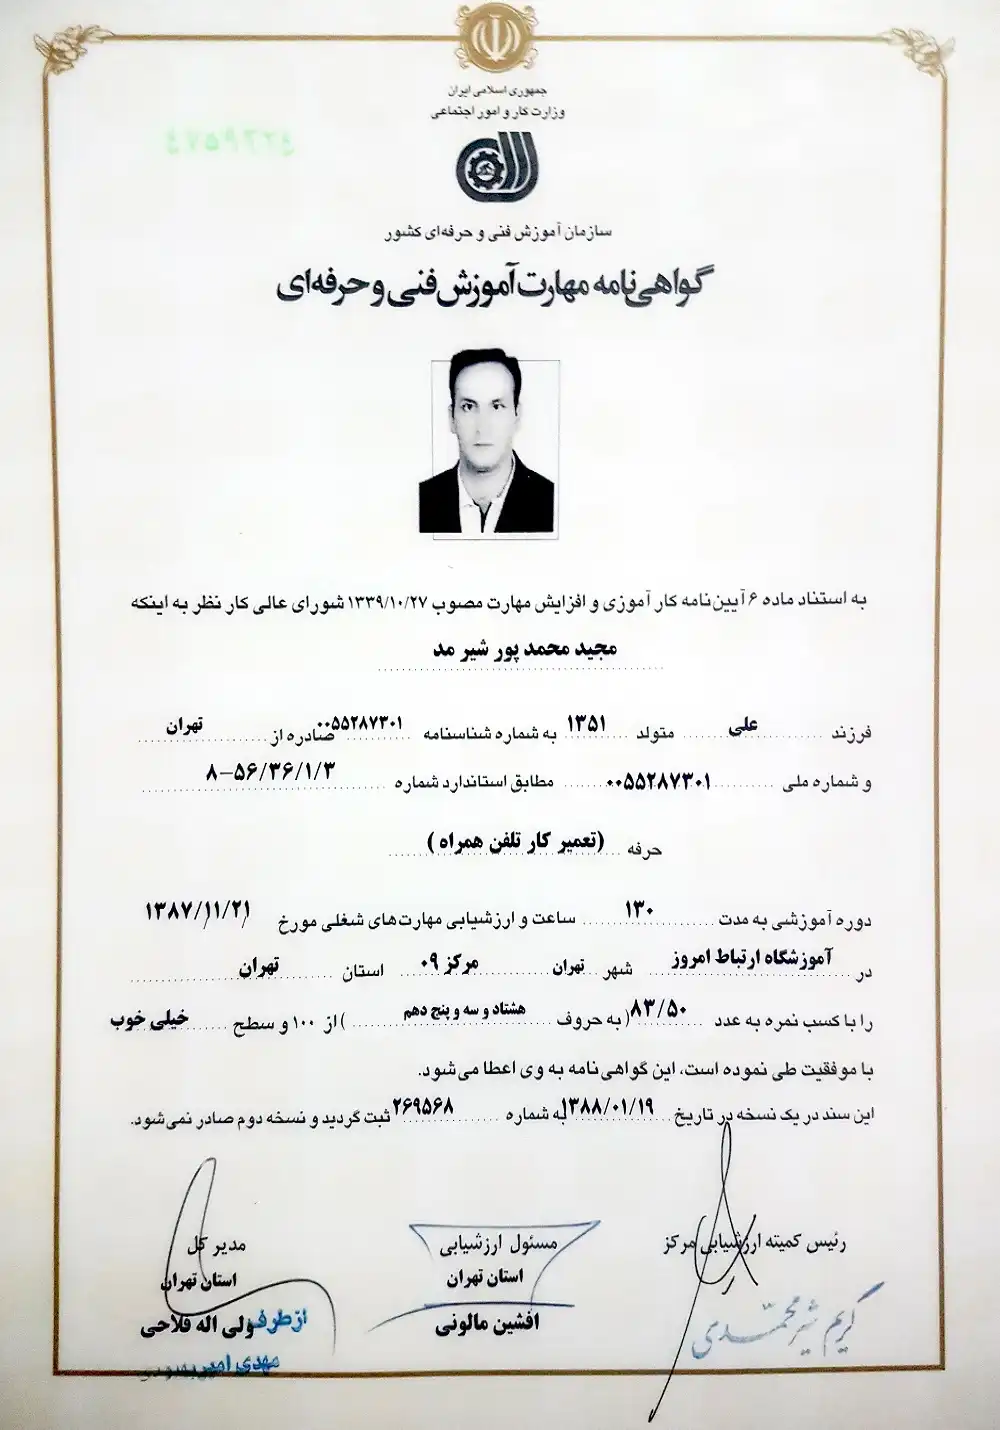 جمهوری اسلامی ایران
وزارت کار و امور اجتماعی
سازمان آموزش فنی و حرفه‌ای کشور
گواهی‌نامه مهارت آموزش فنی و حرفه‌ای
به استناد ماده ۶ آیین‌نامه کارآموزی و افزایش مهارت مصوب ۱۳۳۹/۱۰/۲۷ شورای عالی کار نظر به اینکه
مجید محمد پور شیر مد
فرزند علی متولد ۱۳۵۱ به شماره شناسنامه ۰۰۵۵۲۸۷۳۰۱ صادره از تهران
و شماره ملی ۰۰۵۵۲۸۷۳۰۱ مطابق استاندارد شماره ۸-۵۶/۳۶/۱/۳
حرفه (تعمیر کار تلفن همراه)
دوره آموزشی به مدت ۱۳۰ ساعت و ارزشیابی مهارت‌های شغلی مورخ ۱۳۸۷/۱۱/۲۱
در آموزشگاه ارتباط امروز شهر تهران مرکز ۰۹ استان تهران
را با کسب نمره به عدد ۸۳/۵۰ (به حروف هشتاد و سه و پنج دهم) از ۱۰۰ و سطح خیلی خوب
با موفقیت طی نموده است، این گواهی‌نامه به وی اعطا می‌شود.
این سند در یک نسخه در تاریخ ۱۳۸۸/۰۱/۱۹ به شماره ۲۶۹۵۶۸ ثبت گردید و نسخه دوم صادر نمی‌شود.
رئیس کمیته ارزشیابی مرکز
کریم شیرمحمدی
مسئول ارزشیابی
استان تهران
افشین مالونی
مدیر کل
استان تهران
ولی اله فلاحی
از طرف
مهدی امیر